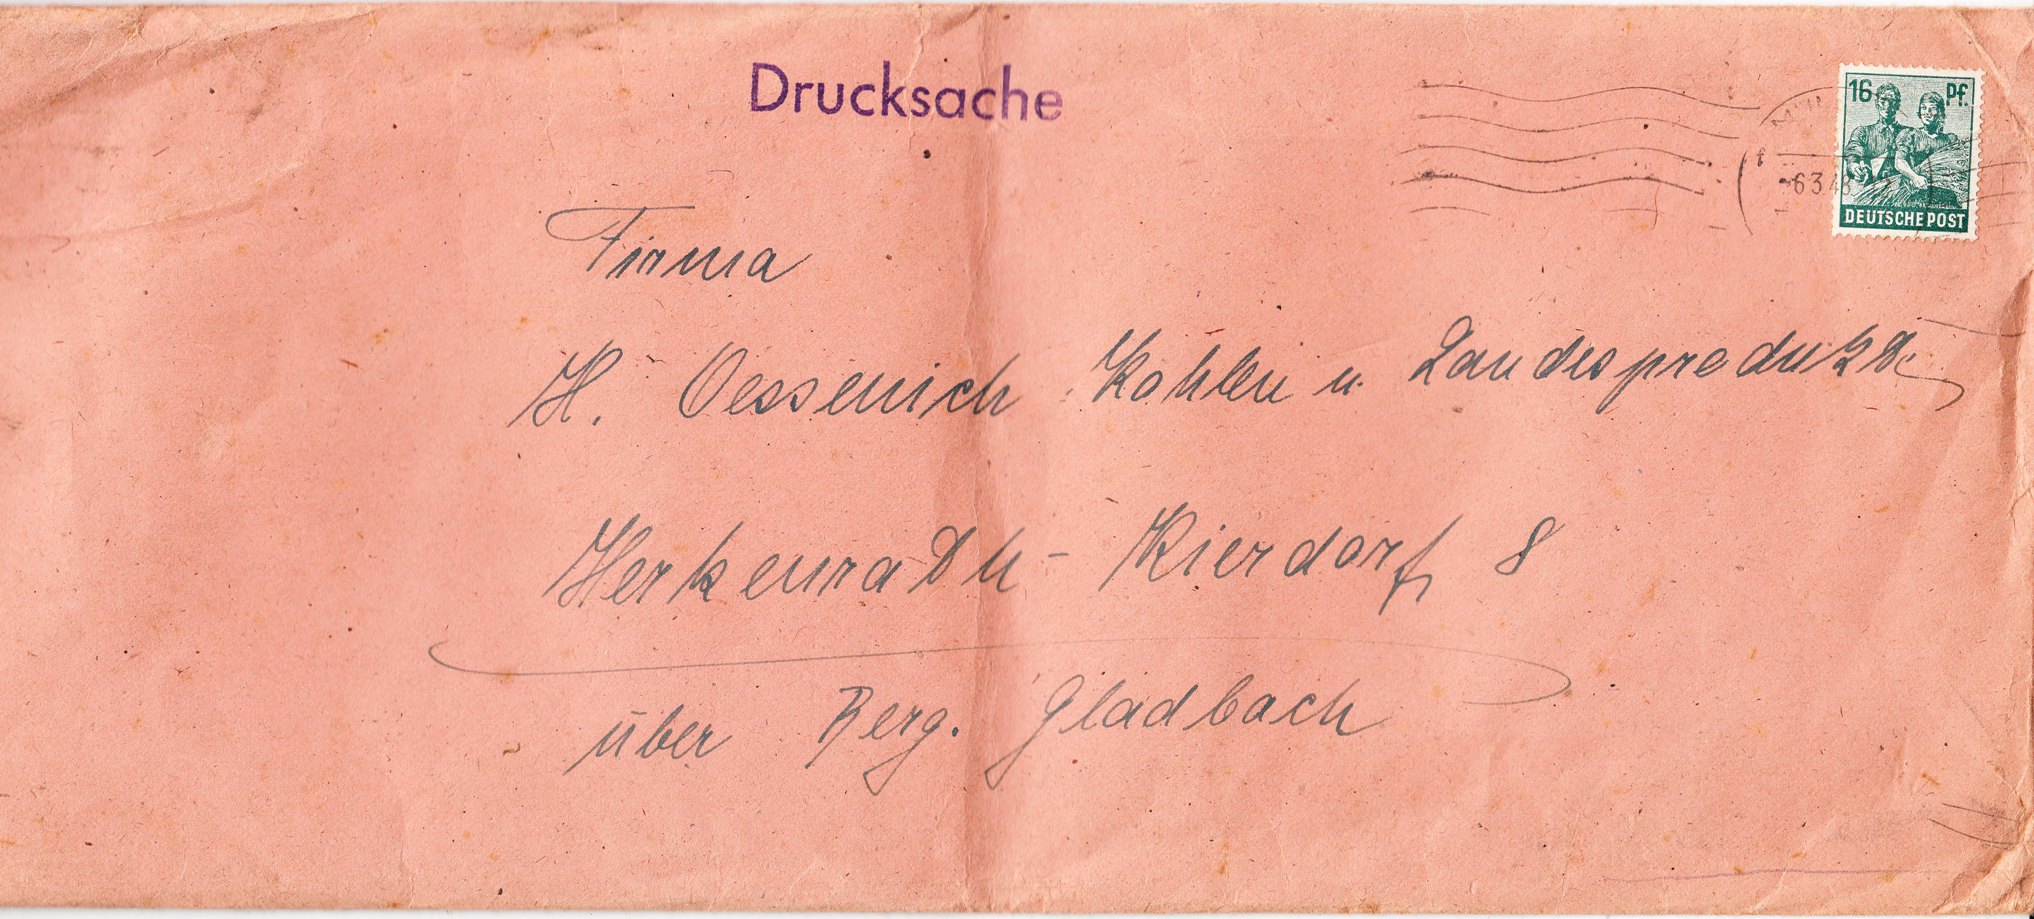 Drucksache
16 Pf.
-6.3.48
DEUTSCHE POST
Firma
H. Oessenich Kohlen u. Landesprodukte
Herkenrath - Kierdorf 8
über Berg. Gladbach